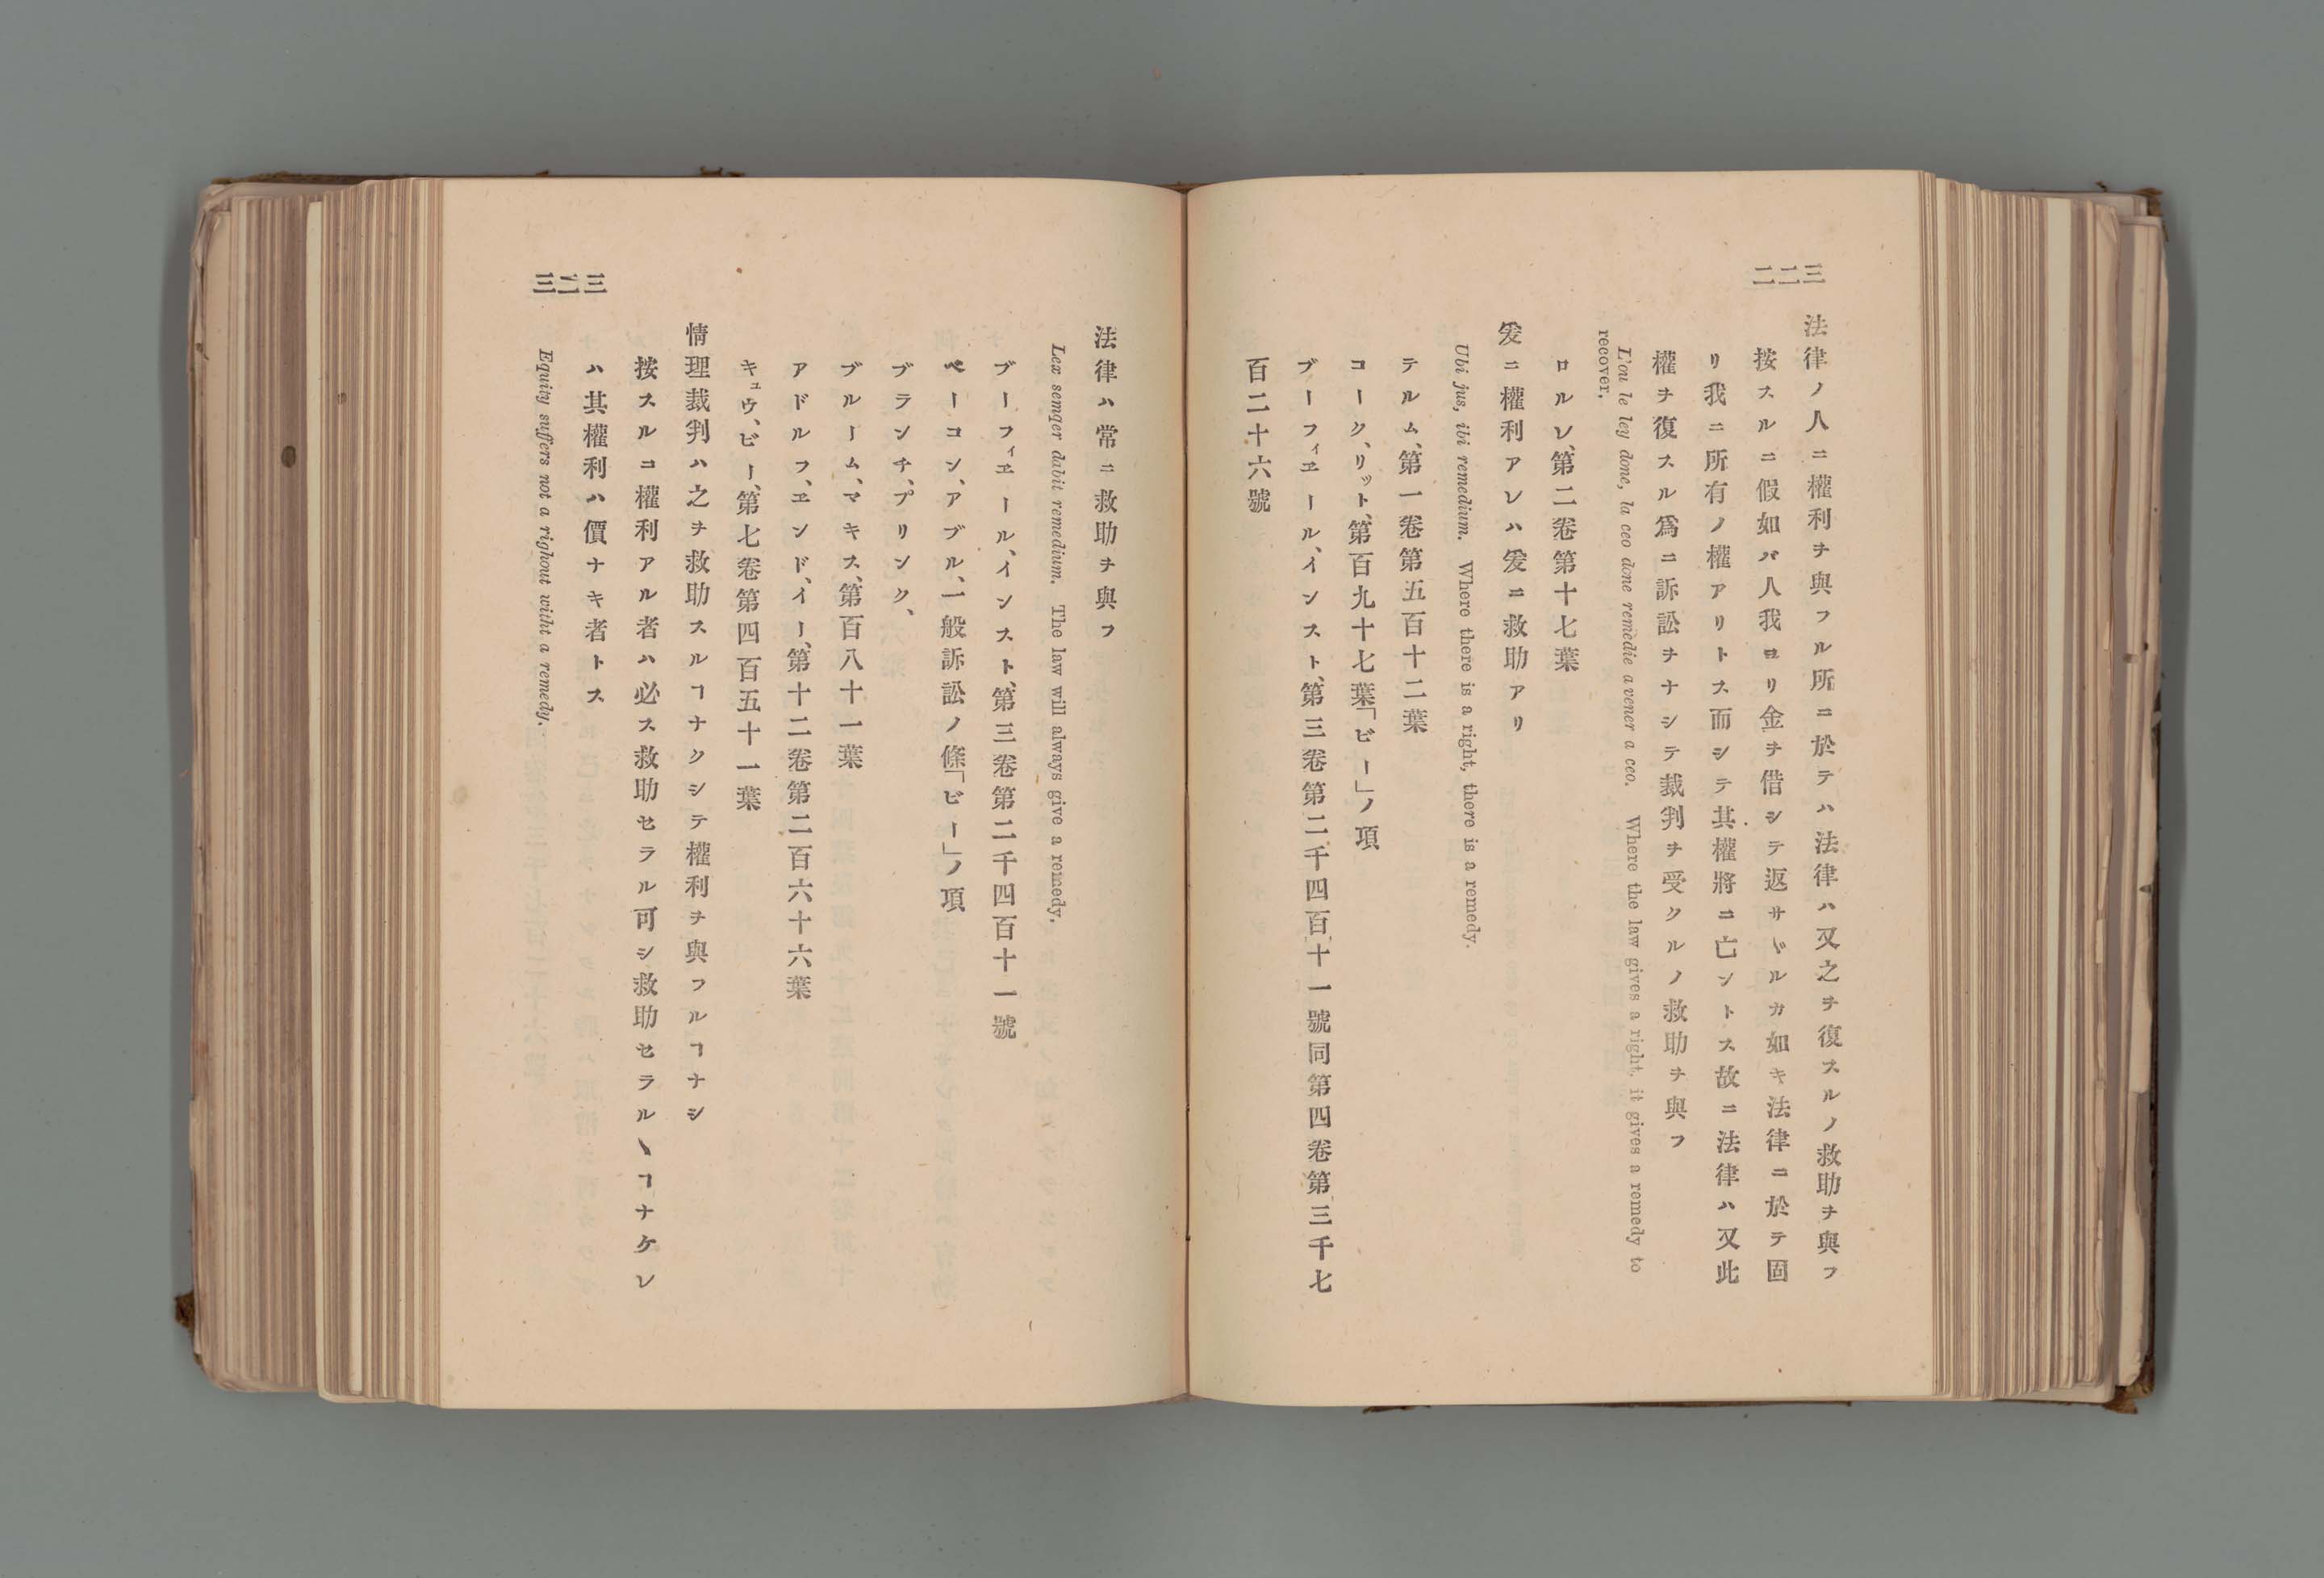 三二二
法律ノ人ニ權利ヲ與フル所ニ於テハ法律ハ又之ヲ復スルノ救助ヲ與フ
按スルニ假如バ人我ヨリ金ヲ借シテ返サヾルカ如キ法律ニ於テ固
リ我ニ所有ノ權アリトス而シテ其權將ニ亡ントス故ニ法律ハ又此
權ヲ復スル爲ニ訴訟ヲナシテ裁判ヲ受クルノ救助ヲ與フ
L'ou le ley done, la ceo done remèdie a vener a ceo. Where the law gives a right, it gives a remedy to
recover.
ロルレ、第二卷第十七葉
爰ニ權利アレハ爰ニ救助アリ
Ubi jus, ibi remedium. Where there is a right, there is a remedy.
テルム、第一卷第五百十二葉
コーク、リット、第百九十七葉「ビー」ノ項
ブーフィヱール、インスト、第三卷第二千四百十一號同第四卷第三千七
百二十六號
法律ハ常ニ救助ヲ與フ
Lex semqer dabit remedium. The law will always give a remedy.
ブーフィヱール、インスト、第三卷第二千四百十一號
ベーコン、アブル、一般訴訟ノ條「ビー」ノ項
ブランチ、プリンク、
ブルーム、マキス、第百八十一葉
アドルフ、ヱンド、イー、第十二卷第二百六十六葉
キュウ、ビー、第七卷第四百五十一葉
情理裁判ハ之ヲ救助スルヿナクシテ權利ヲ與フルヿナシ
按スルニ權利アル者ハ必ス救助セラル可シ救助セラルヽヿナケレ
ハ其權利ハ價ナキ者トス
Equity suffers not a righout witht a remedy.
三二三